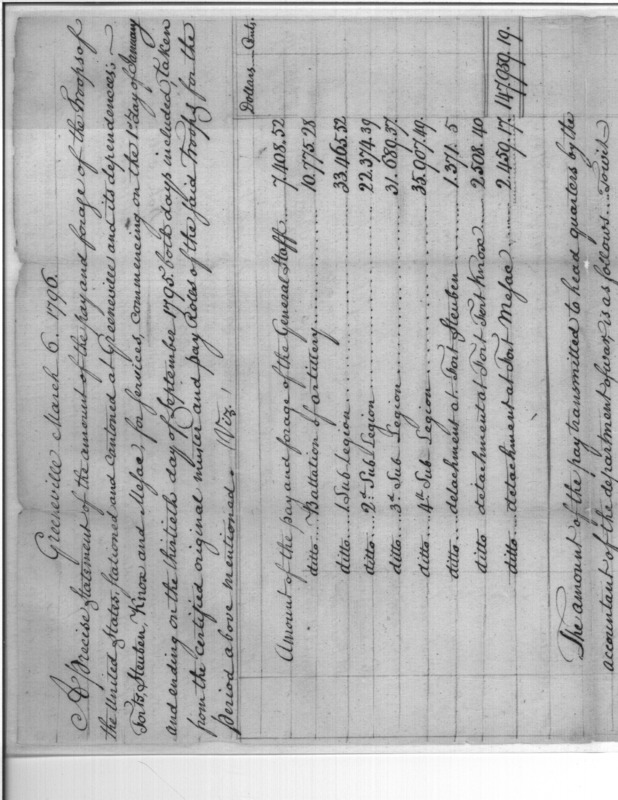 Greeneville March 6. 1796.
A precise Statement of the amount of the pay and forage of the Troops of
the United States, Stationed and cantoned at Greeneville and its dependences;
Forts, Steuben, Knox and Mesac for services, commencing on the 1st day of January
and ending on the thirtieth day of September 1795. both days included, taken
from the certified original muster and pay Roles of the said Troops for the
period above mentioned. Viz.
Dollars Cents.
Amount of the pay and forage of the General Staff 7.408.52
ditto ... Battalion of artillery 10.775.28
ditto ... 1 Sub Legion 33.465.52
ditto ... 2d Sub Legion 22.374.39
ditto ... 3d Sub Legion 31.680.37.
ditto ... 4th Sub Legion 35.007.49.
ditto ... detachment at Fort Steuben 1.371.5
ditto detachment at Fort Knox 2.508.40
ditto ... detachment at Fort Mesac 2.459.17. 147,050.19.
The amount of the pay transmitted to head quarters by the
accountant of the department of war, is as follows. Towit